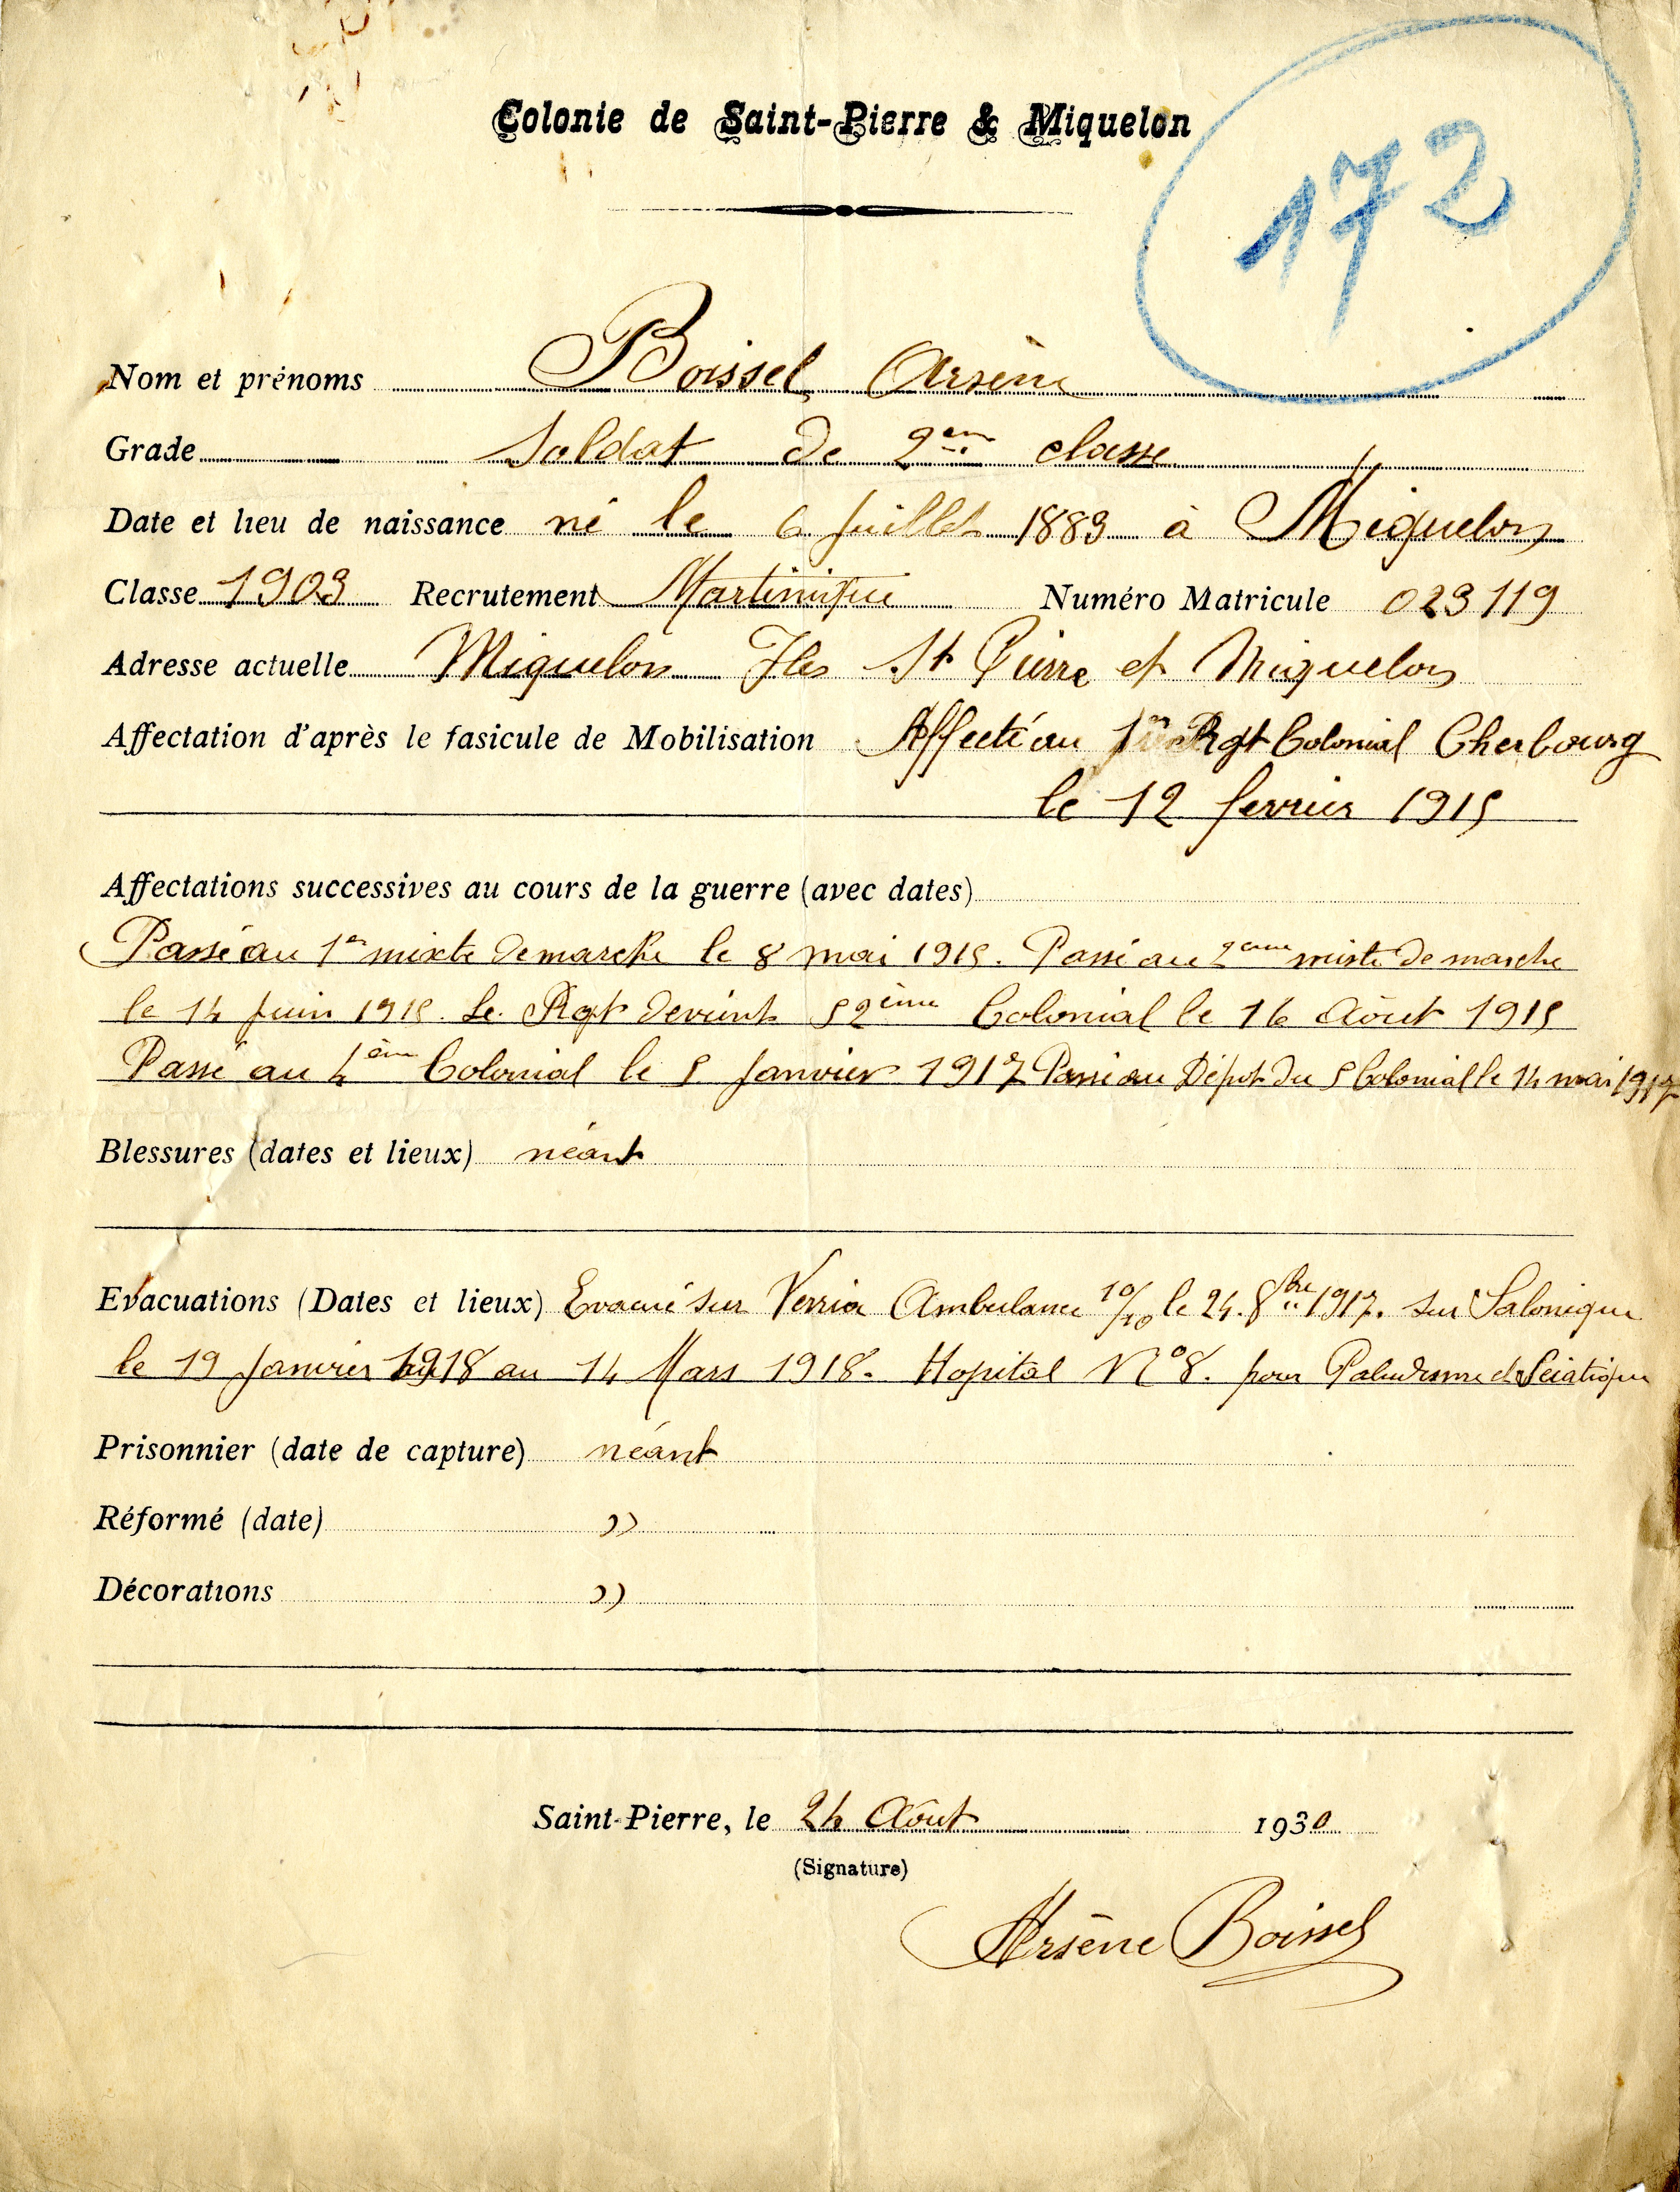 Colonie de Saint-Pierre & Miquelon
172
Nom et prénoms Boissel Arsène
Grade Soldat de 2ème classe
Date et lieu de naissance né le 6 Juillet 1883 à Miquelon
Classe 1903 Recrutement Martinique Numéro Matricule 023119
Adresse actuelle Miquelon Iles St Pierre et Miquelon
Affectation d'après le fasicule de Mobilisation Affecté au 1er Rgt Colonial Cherbourg
le 12 fevrier 1915
Affectations successives au cours de la guerre (avec dates)
Passé au 1er mixte de marche le 8 mai 1915. Passé au 2ème mixte de marche
le 14 Juin 1915. Le Rgt devient 52ème Colonial le 16 Août 1915
Passé au 4ème Colonial le 5 Janvier 1917 Passé au Dépot du 5 Colonial le 14 mai 1917
Blessures (dates et lieux) néant
Evacuations (Dates et lieux) Evacué sur Verria Ambulance 10/10 le 24. 8bre 1917. sur Salonique
le 19 Janvier 1918 au 14 Mars 1918. Hopital N° 8. pour Paludisme et Sciatique
Prisonnier (date de capture) néant
Réformé (date) ))
Décorations ))
Saint-Pierre, le 24 Août 1930
(Signature)
Arsène Boissel